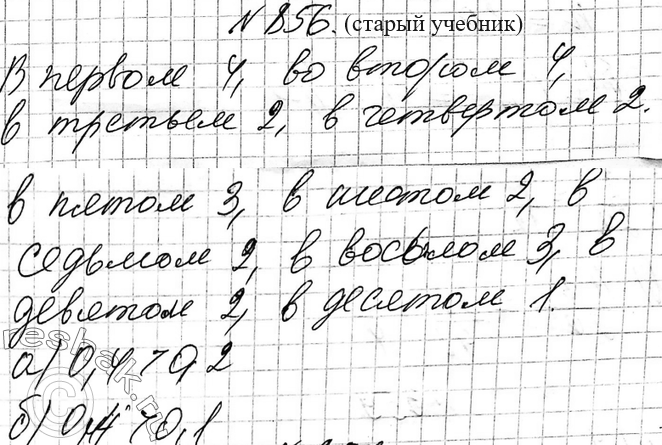 № 856. (старый учебник)
В первом 4, во втором 4,
в третьем 2, в четвертом 2.
в пятом 3, в шестом 2, в
седьмом 2, в восьмом 3, в
девятом 2, в десятом 1.
а) 0,4 > 0,2
б) 0,4 > 0,1
reshak.ru